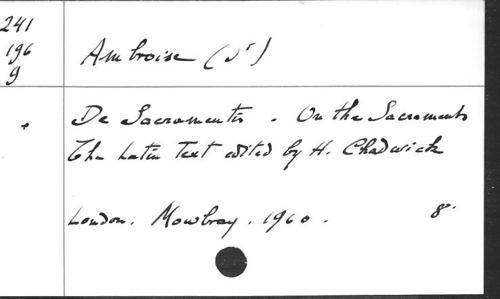 241
196
9
Ambroise (St)
De Sacramentis. On the Sacraments
The Latin Text edited by H. Chadwick
London. Mowbray. 1960. 8°